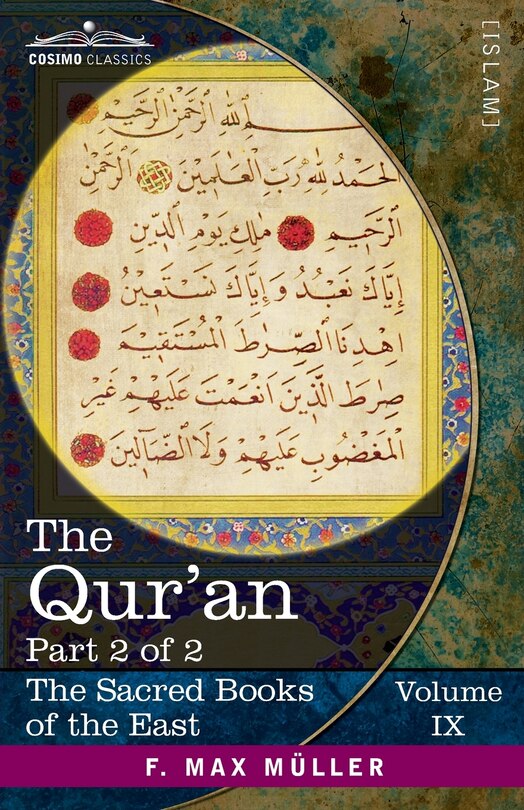 COSIMO CLASSICS
[ISLAM]
بسم الله الرَّحْمٰنِ الرَّحِيمِ
الحَمْدُ لله رَبِّ العَالَمِينَ الرَّحْمٰنِ
الرَّحِيمِ مٰلِكِ يَوْمِ الدِّينِ
إِيَّاكَ نَعْبُدُ وَإِيَّاكَ نَسْتَعِينُ
اهْدِنَا الصِّرَاطَ الْمُسْتَقِيمَ
صِرَاطَ الَّذِينَ اَنْعَمْتَ عَلَيْهِمْ غَيْرِ
الْمَغْضُوبِ عَلَيْهِمْ وَلَا الضَّالِّينَ
The
Qur'an
Part 2 of 2
The Sacred Books
of the East
Volume
IX
F. MAX MÜLLER